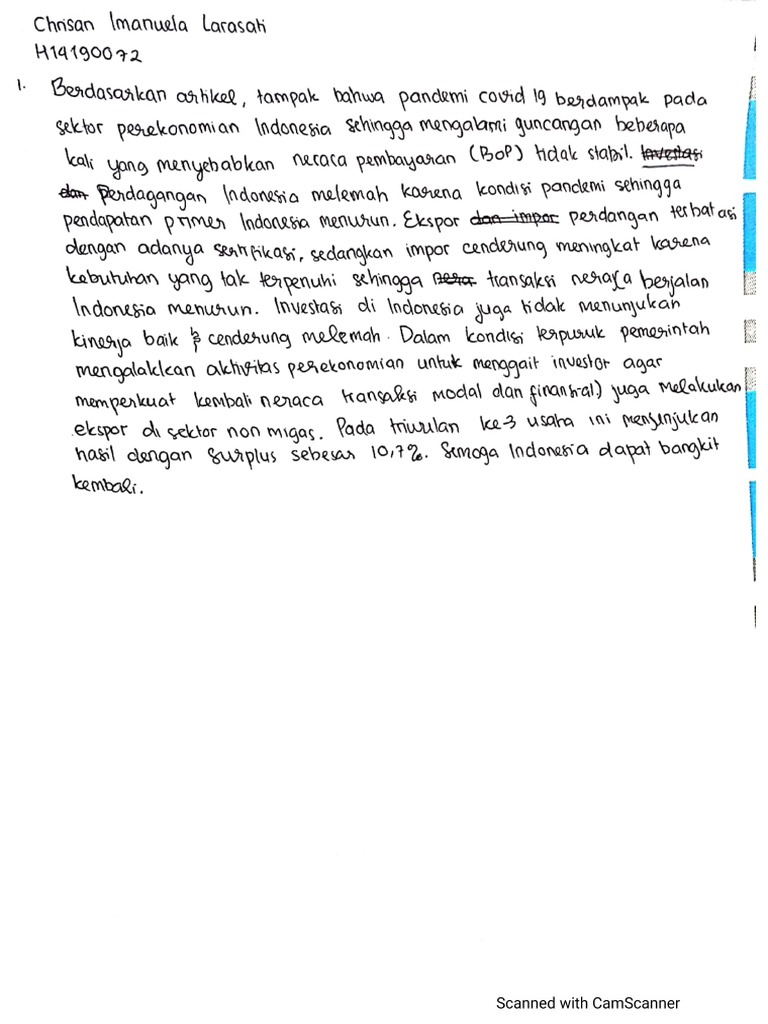 Chrisan Imanuela Larasati
H14190072
1. Berdasarkan artikel, tampak bahwa pandemi covid 19 berdampak pada
sektor perekonomian Indonesia sehingga mengalami guncangan beberapa
kali yang menyebabkan neraca pembayaran (BoP) tidak stabil. Investasi
dan Perdagangan Indonesia melemah karena kondisi pandemi sehingga
pendapatan primer Indonesia menurun. Ekspor dan impor perdangan terbatasi
dengan adanya sertifikasi, sedangkan impor cenderung meningkat karena
kebutuhan yang tak terpenuhi sehingga nera transaksi neraca berjalan
Indonesia menurun. Investasi di Indonesia juga tidak menunjukan
kinerja baik & cenderung melemah. Dalam kondisi terpuruk pemerintah
mengalakkan aktivitas perekonomian untuk menggait investor agar
memperkuat kembali neraca transaksi modal dan finansial) juga melakukan
ekspor di sektor non migas. Pada triwulan ke-3 usaha ini menunjukan
hasil dengan surplus sebesar 10,7%. Semoga Indonesia dapat bangkit
kembali.
Scanned with CamScanner